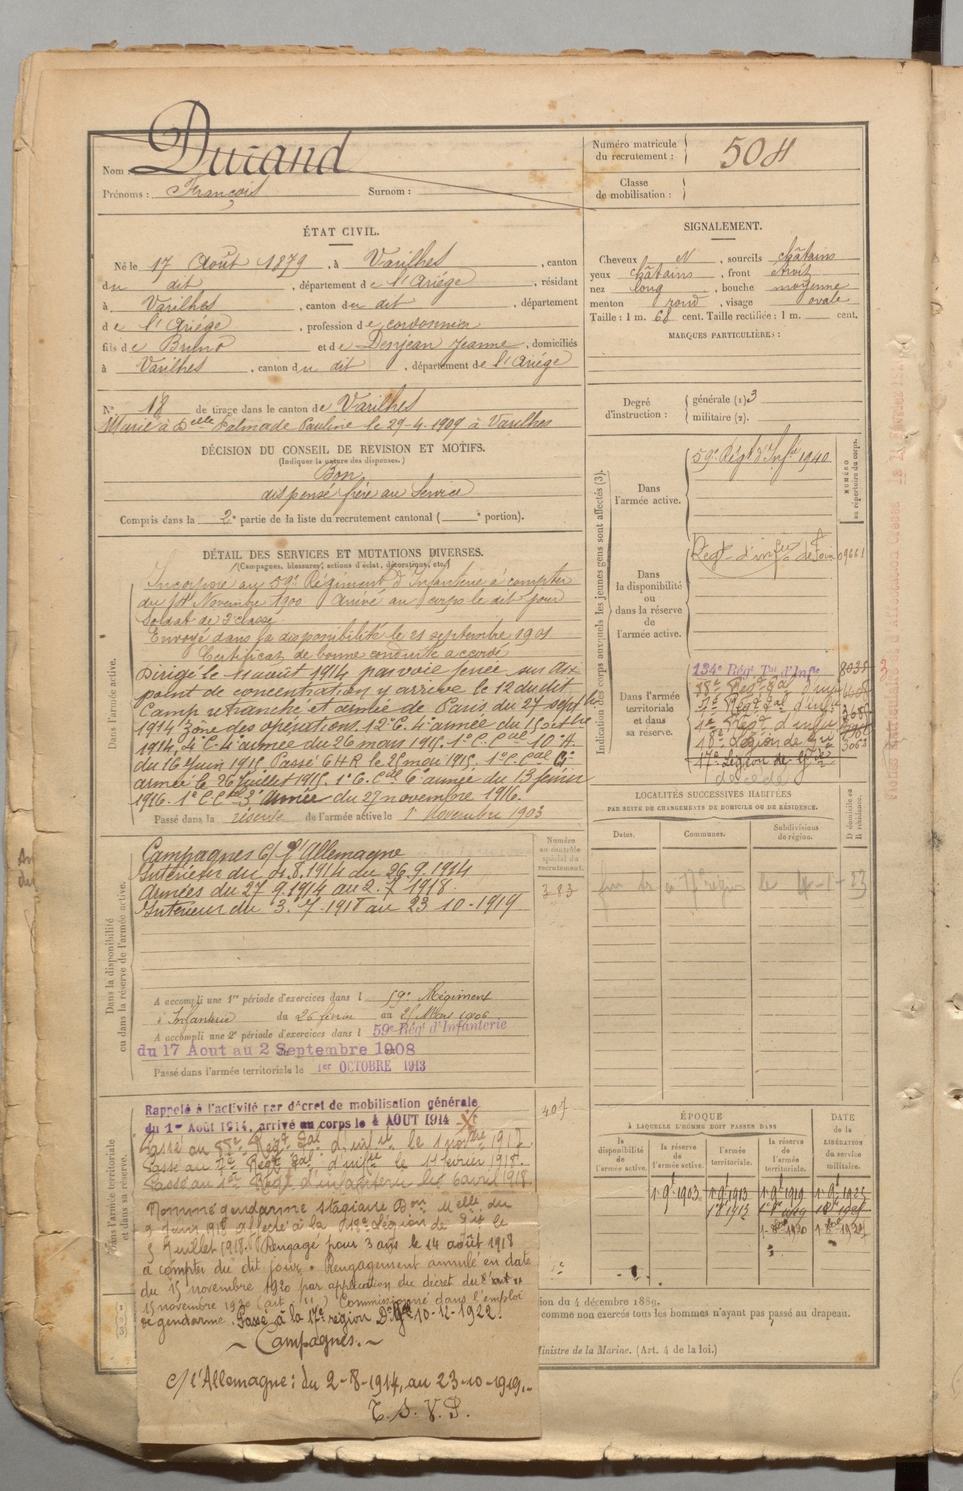 Nom : Durand
Prénoms : François Surnom :
Numéro matricule
du recrutement : 504
Classe
de mobilisation :
ÉTAT CIVIL.
Né le 17 Août 1879, à Varilhes, canton
du dit, département de l'Ariége, résidant
à Varilhes, canton du dit, département
de l'Ariége, profession de cordonnier
fils de Bruno et de Denjean Jeanne, domiciliés
à Varilhes, canton du dit, département de l'Ariége
N° 18 de tirage dans le canton de Varilhes
Marié à Delle Palmade Pauline le 29-4-1909 à Varilhes
DÉCISION DU CONSEIL DE REVISION ET MOTIFS.
(Indiquer la nature des dispenses.)
Bon
dispensé frère au Service
Compris dans la 2e partie de la liste du recrutement cantonal ( e portion).
DÉTAIL DES SERVICES ET MUTATIONS DIVERSES.
(Campagnes, blessures, actions d'éclat, décorations, etc.)
Dans l'armée active.
Incorporé au 59e Régiment d'Infanterie à compter
du 14 Novembre 1900 Arrivé au corps le dit jour
Soldat de 2e classe
Envoyé dans la disponibilité le 21 septembre 1901
Certificat de bonne conduite accordé
Dirigé le 11 août 1914 par voie ferrée sur
point de concentration y arrive le 12 du dit
Camp retranché et armée de Paris du 27 septbre
1914 Zône des opérations. 12e C. 4e armée du 15 octbre
1914, 4e C. 4e armée du 26 mars 1915. 1er C. Cal 10e A.
du 16 Juin 1915 Passé 6 H R le 25 mai 1915, 1er C. Cal 6e
armée le 26 Juillet 1915. 1er C. Cal 6e armée du 13 février
1916. 1er C Cal 3e armée du 27 novembre 1916.
Passé dans la réserve de l'armée active le 1 Novembre 1903
Dans la disponibilité
ou dans la réserve de l'armée active.
Campagnes c/ l'Allemagne
Intérieur du 4.8.1914 du 26.9.1914
Armées du 27 9.1914 au 2.7 1918.
Intérieur du 3.7.1918 au 23 10-1919
A accompli une 1re période d'exercices dans l 59e Régiment
d'Infanterie du 26 février au 25 Mars 1906
A accompli une 2e période d'exercices dans l 59e Rég. d'Infanterie
du 17 Aout au 2 Septembre 1908
Passé dans l'armée territoriale le 1er OCTOBRE 1913
Dans l'armée territoriale
et dans sa réserve.
Rappelé à l'activité par décret de mobilisation générale
du 1er Août 1914, arrivé au corps le 4 AOUT 1914
Passé au Régt Cal d'infie le 1 novbre 1917.
Passé au 7e Régt Cal d'infie le 1 février 1918.
Passé au 1er Régt d'infanterie le 6 avril 1918
Nommé gendarme stagiaire Don Melle du
9 Juin 1918 affecté à la 18e légion de Gie le
5 Juillet 1918. Rengagé pour 3 ans le 14 août 1918
à compter du dit jour. Rengagement annulé en date
du 15 novembre 1920 par application du décret du
15 novembre 1920 (art. 11) Commissionné dans l'emploi
de gendarme. Passé à la 17e région 10-12-1922.
~ Campagnes. ~
c/ l'Allemagne : du 2-8-1914, au 23-10-1919.
T. S. V. P.
Numéro
au contrôle
spécial du
recrutement.
383
407
SIGNALEMENT.
Cheveux N, sourcils châtains
yeux châtains, front étroit
nez long, bouche moyenne
menton rond, visage ovale
Taille : 1 m. 68 cent. Taille rectifiée : 1 m. cent.
MARQUES PARTICULIÈRES :
Degré
d'instruction :
générale (1) 3
militaire (2).
Indication des corps auxquels les jeunes gens sont affectés (3).
NUMÉRO
au répertoire du corps.
Dans
l'armée active.
59e Régt d'Infie 1940
Dans
la disponibilité
ou
dans la réserve
de
l'armée active.
Régt d'infie de Foix 09661
Dans l'armée
territoriale
et dans
sa réserve.
134e Régt Tal d'Infie
Régt Cal d'infie
7e Régt Cal d'infie
1er Régt d'infie
18e Légion de Gie
17e Légion de Gie
décédé
LOCALITÉS SUCCESSIVES HABITÉES
PAR SUITE DE CHANGEMENTS DE DOMICILE OU DE RÉSIDENCE.
Dates.
Communes.
Subdivisions
de région.
D domicile ou
R résidence.
ÉPOQUE
À LAQUELLE L'HOMME DOIT PASSER DANS
DATE
de la
LIBÉRATION
du service
militaire.
la
disponibilité
de
l'armée active.
la réserve
de
l'armée active.
l'armée
territoriale.
la réserve
de
l'armée
territoriale.
1.9.1903 1.9.1913 1.9.1919 1.9.1925
ion du 4 décembre 1889.
comme non exercés tous les hommes n'ayant pas passé au drapeau.
Ministre de la Marine. (Art. 4 de la loi.)